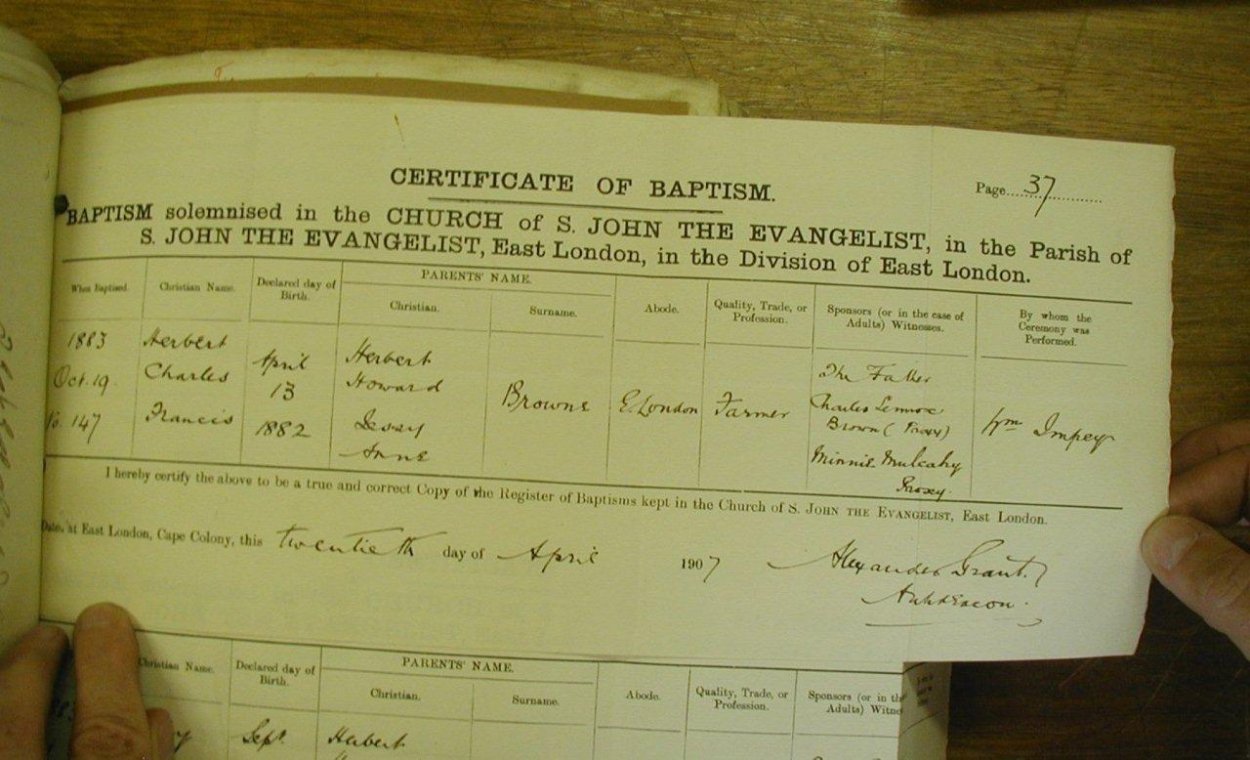 CERTIFICATE OF BAPTISM.
Page 37
BAPTISM solemnised in the CHURCH of S. JOHN THE EVANGELIST, in the Parish of
S. JOHN THE EVANGELIST, East London, in the Division of East London.
When Baptised.
Christian Name.
Declared day of
Birth.
PARENTS' NAME.
Christian.
Surname.
Abode.
Quality, Trade, or
Profession.
Sponsors (or in the case of
Adults) Witnesses.
By whom the
Ceremony was
Performed.
1883
Oct. 19
No. 147
Herbert
Charles
Francis
April
13
1882
Herbert
Howard
Jessy
Anne
Browne
E. London
Farmer
The Father
Charles Lennox
Brown (Proxy)
Minnie Mulcahy
Proxy.
Wm Impey
I hereby certify the above to be a true and correct Copy of the Register of Baptisms kept in the Church of S. JOHN THE EVANGELIST, East London.
Date, at East London, Cape Colony, this twentieth day of April 1907
Alexander Grant.
Archdeacon.
Christian Name.
Declared day of
Birth.
PARENTS' NAME.
Christian.
Surname.
Abode.
Quality, Trade, or
Profession.
Sponsors (or in the
Adults)
Sept.
Herbert